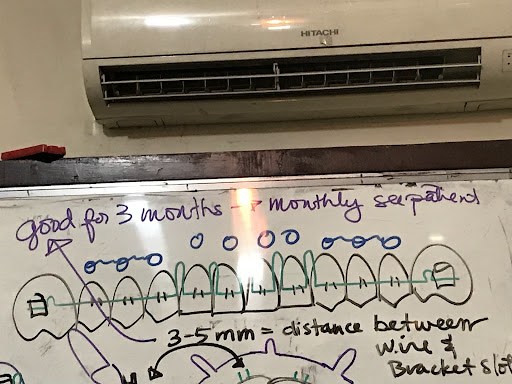 HITACHI
good for 3 months → monthly see patient
3-5 mm = distance between
wire &
Bracket Slot